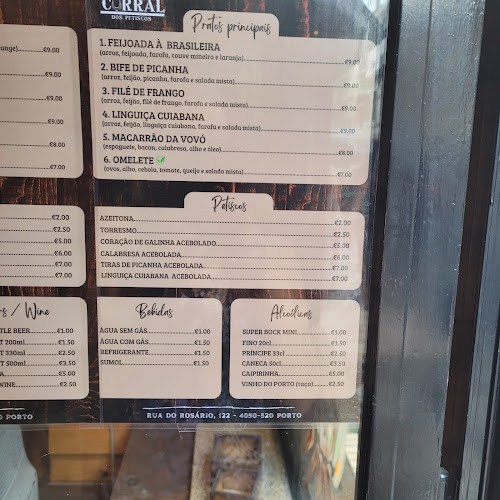 CURRAL
DOS PETISCOS
Pratos principais
1. FEIJOADA À BRASILEIRA
(arroz, feijoada, farofa, couve mineira e laranja)...€9.00
2. BIFE DE PICANHA
(arroz, feijão, picanha, farofa e salada mista)...€9.00
3. FILÉ DE FRANGO
(arroz, feijão, filé de frango, farofa e salada mista)...€9.00
4. LINGUIÇA CUIABANA
(arroz, feijão, linguiça cuiabana, farofa e salada mista)...€9.00
5. MACARRÃO DA VOVÓ
(espaguete, bacon, calabresa, alho e óleo)...€8.00
6. OMELETE
(ovos, alho, cebola, tomate, queijo e salada mista)...€7.00
range)...€9.00
€9.00
€9.00
€9.00
€8.00
€7.00
Petiscos
AZEITONA...€2.00
TORRESMO...€2.50
CORAÇÃO DE GALINHA ACEBOLADO...€5.00
CALABRESA ACEBOLADA...€6.00
TIRAS DE PICANHA ACEBOLADA...€7.00
LINGUIÇA CUIABANA ACEBOLADA...€7.00
€2.00
€2.50
€5.00
€6.00
€7.00
€7.00
rs / Wine
TLE BEER...€1.00
T 200ml...€1.50
T 330ml...€2.50
T 500ml...€3.50
A...€5.00
WINE...€2.50
Bebidas
ÁGUA SEM GÁS...€1.00
ÁGUA COM GÁS...€1.50
REFRIGERANTE...€1.50
SUMOL...€1.50
Alcoólicas
SUPER BOCK MINI...€1.00
FINO 20cl...€1.50
PRÍNCIPE 33cl...€2.50
CANECA 50cl...€3.50
CAIPIRINHA...€5.00
VINHO DO PORTO (taça)...€2.50
0 PORTO
RUA DO ROSÁRIO, 122 - 4050-520 PORTO